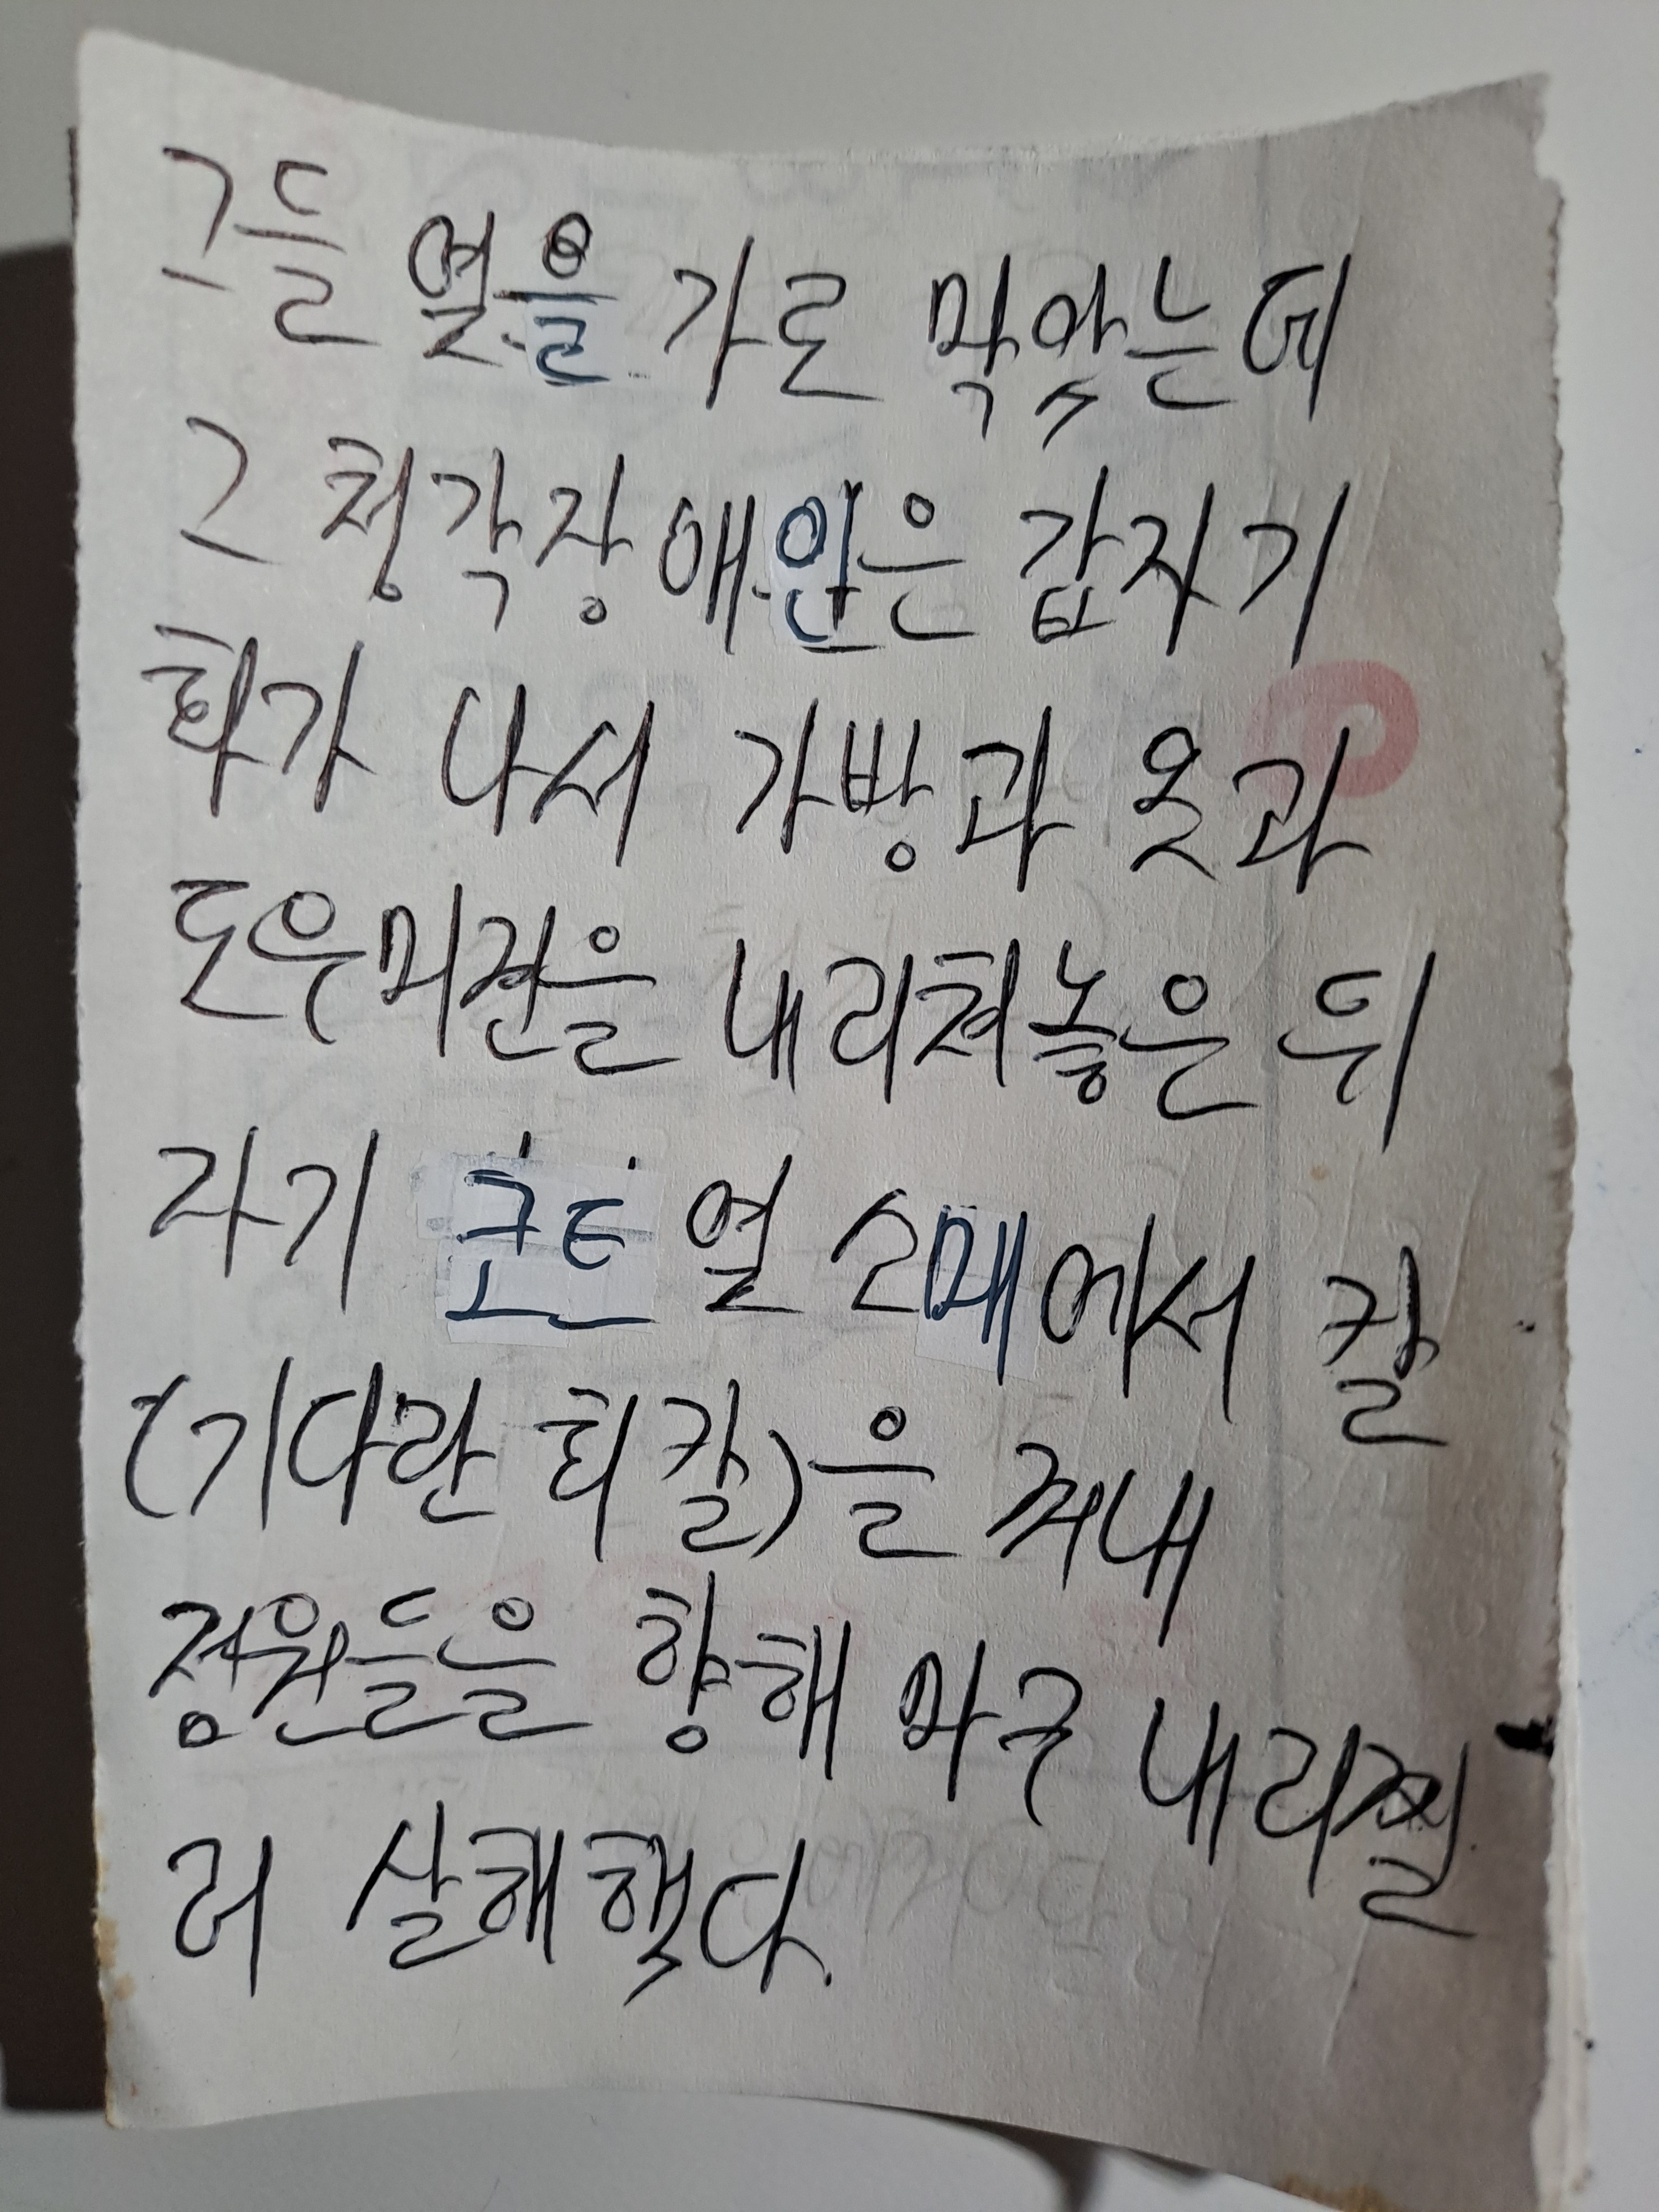 그들 열을 가로 막았는데
그 청각장애인은 갑자기
화가 나서 가방과 옷과
도우미견을 내리쳐놓은 뒤
자기 코트 열 소매에서 칼
(기다란 회칼)을 꺼내
정원들을 향해 마구 내리찔
러 살해했다.